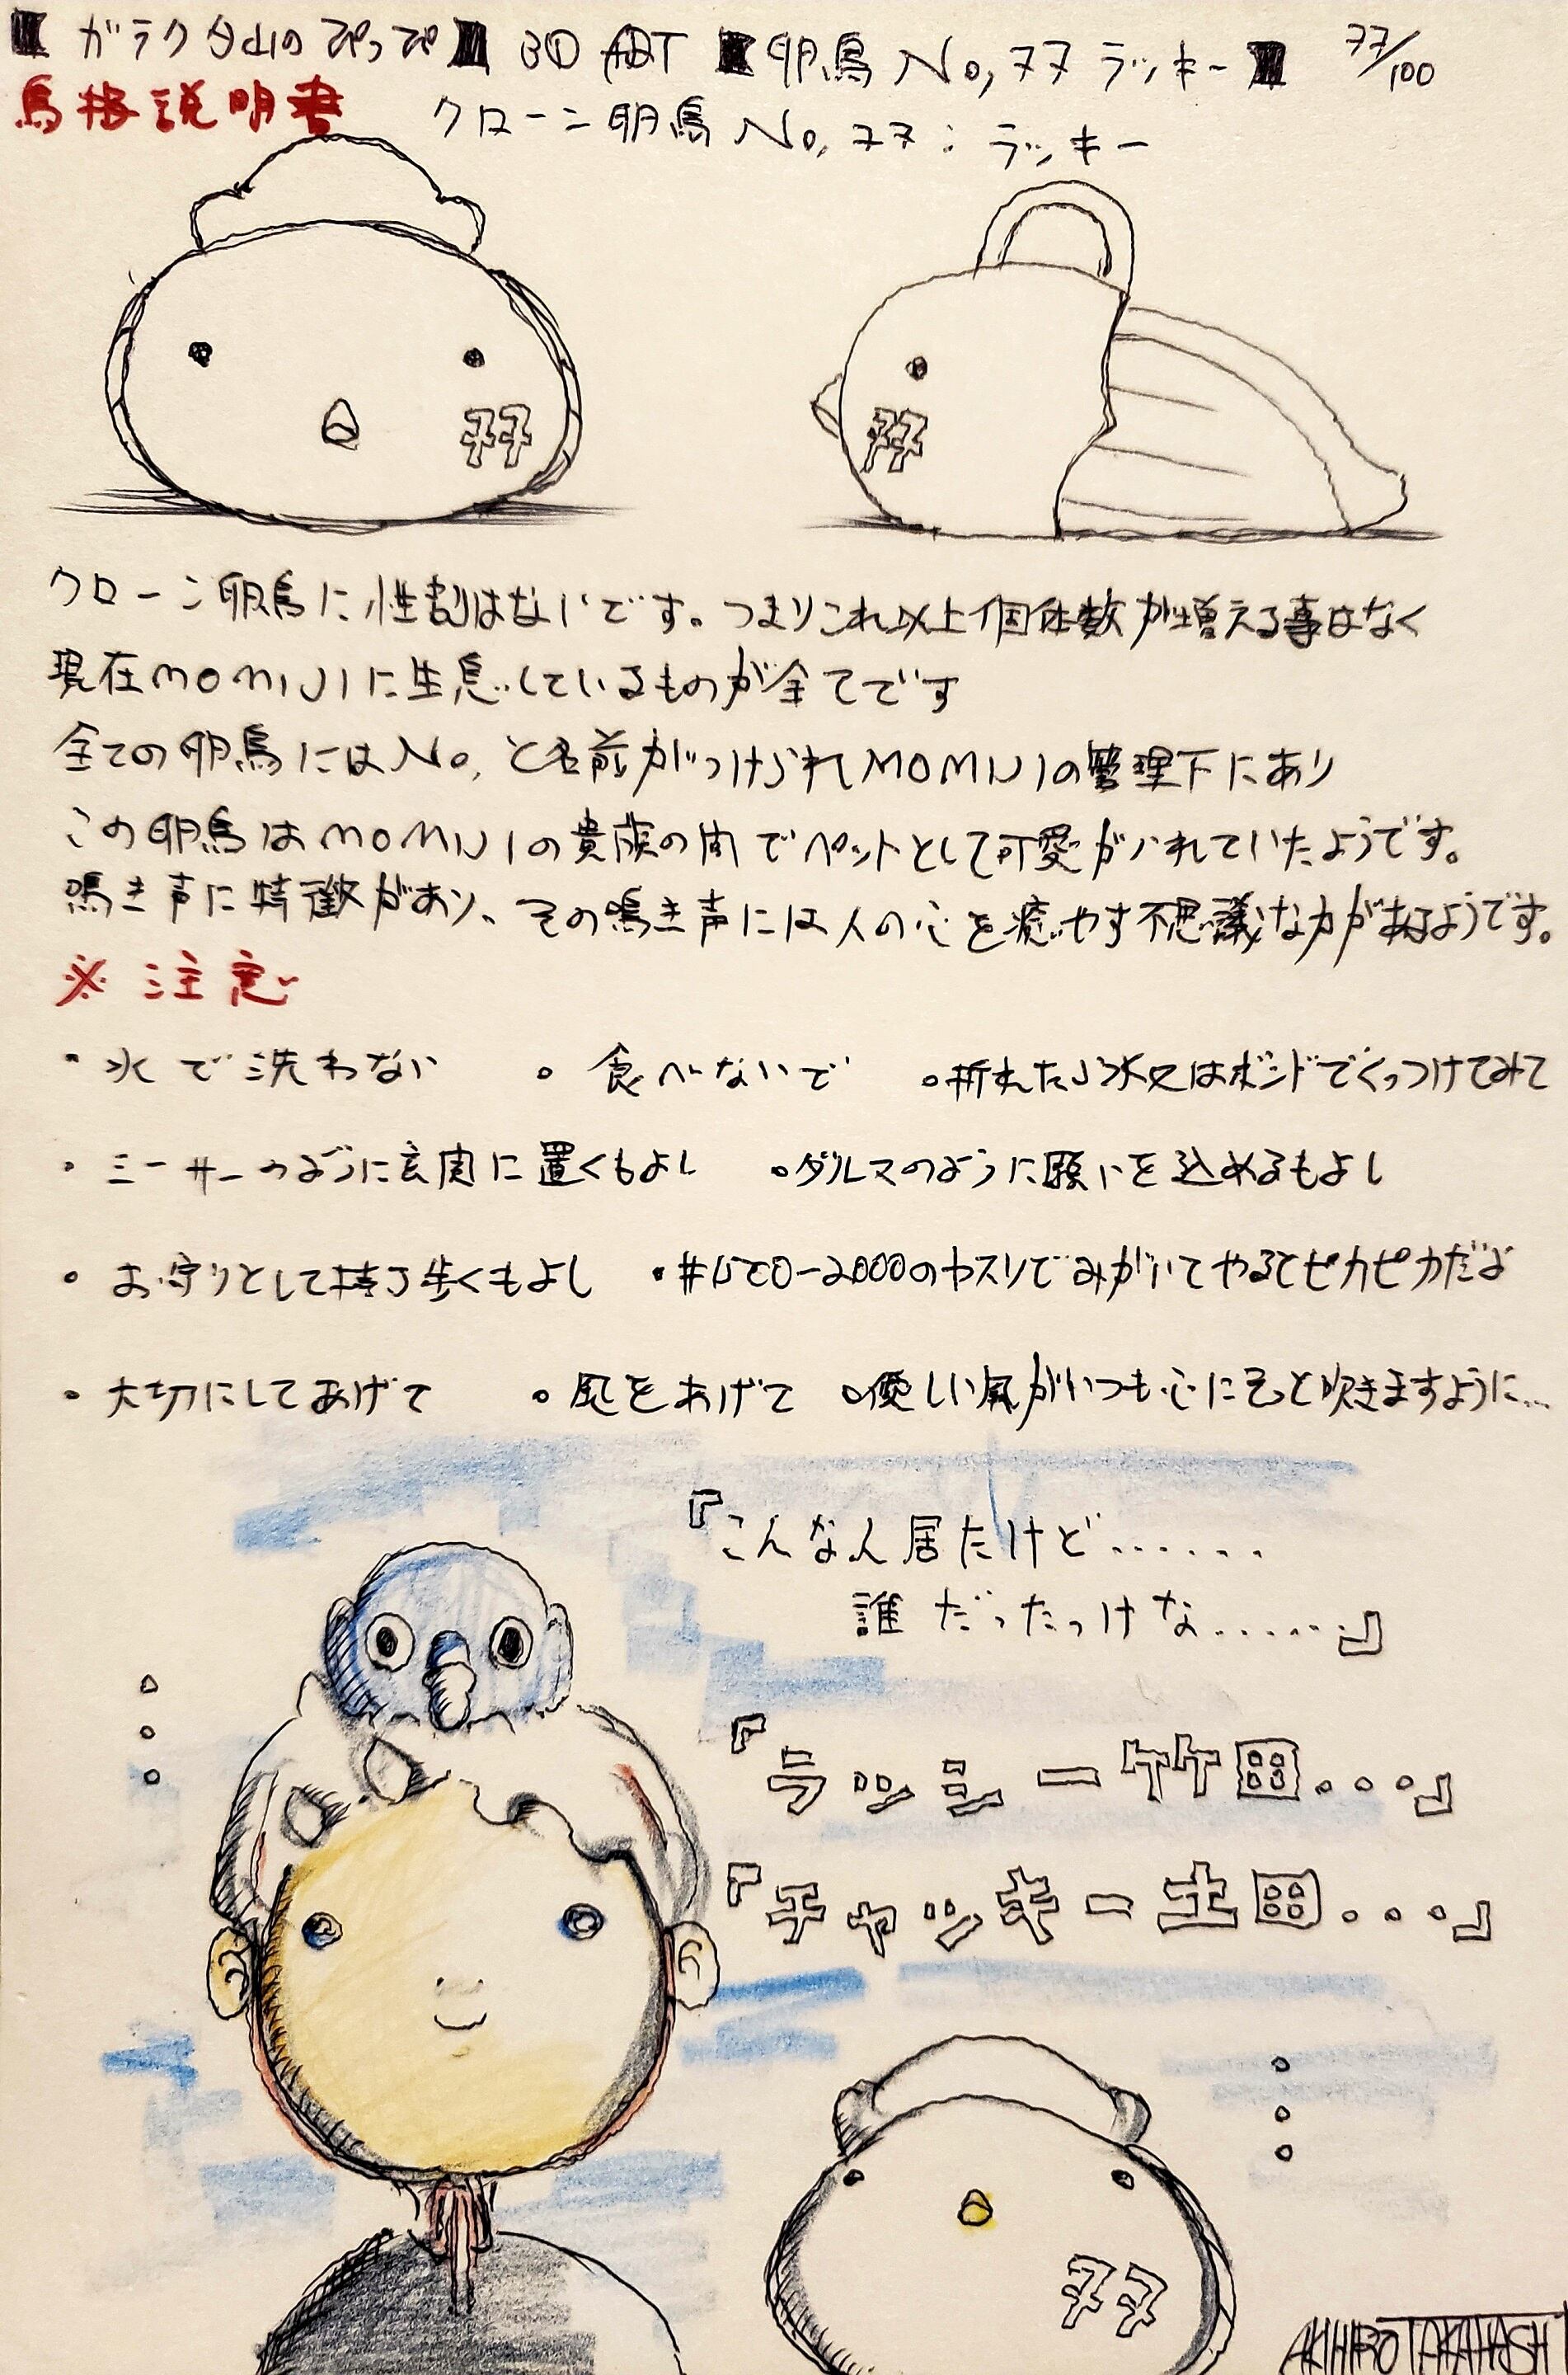 【ガラクタ山のぴっぴ】3D ART【卵鳥 No,77 ラッキー】 77/100
説明書
クローン卵鳥 No,77:ラッキー
77
77
クローン卵鳥に性別はないです。つまりこれ以上個体数が増える事はなく
現在MOMIJIに生息しているものが全てです
全ての卵鳥にはNo,と名前がつけられMOMIJIの管理下にあり
この卵鳥はMOMIJIの貴族の間でペットとして可愛がられていたようです。
鳴き声に特徴があり、その鳴き声には人の心を癒やす不思議な力があるようです。
※注意
・水で洗わない ・食べないで ・折れたら又はボンドでくっつけてみて
・シーサーのように玄関に置くもよし ・ダルマのように願いを込めるもよし
・お守りとして持ち歩くもよし ・#1500-2000のヤスリでみがいてやるとピカピカだよ
・大切にしてあげて ・をあげて ・優しい風がいつも心にそっと吹きますように...
『こんな人居たけど......
誰だったっけな......』
『ラッシー竹田...』
『チャッキー土田...』
77
AKIHIRO TAKAHASHI